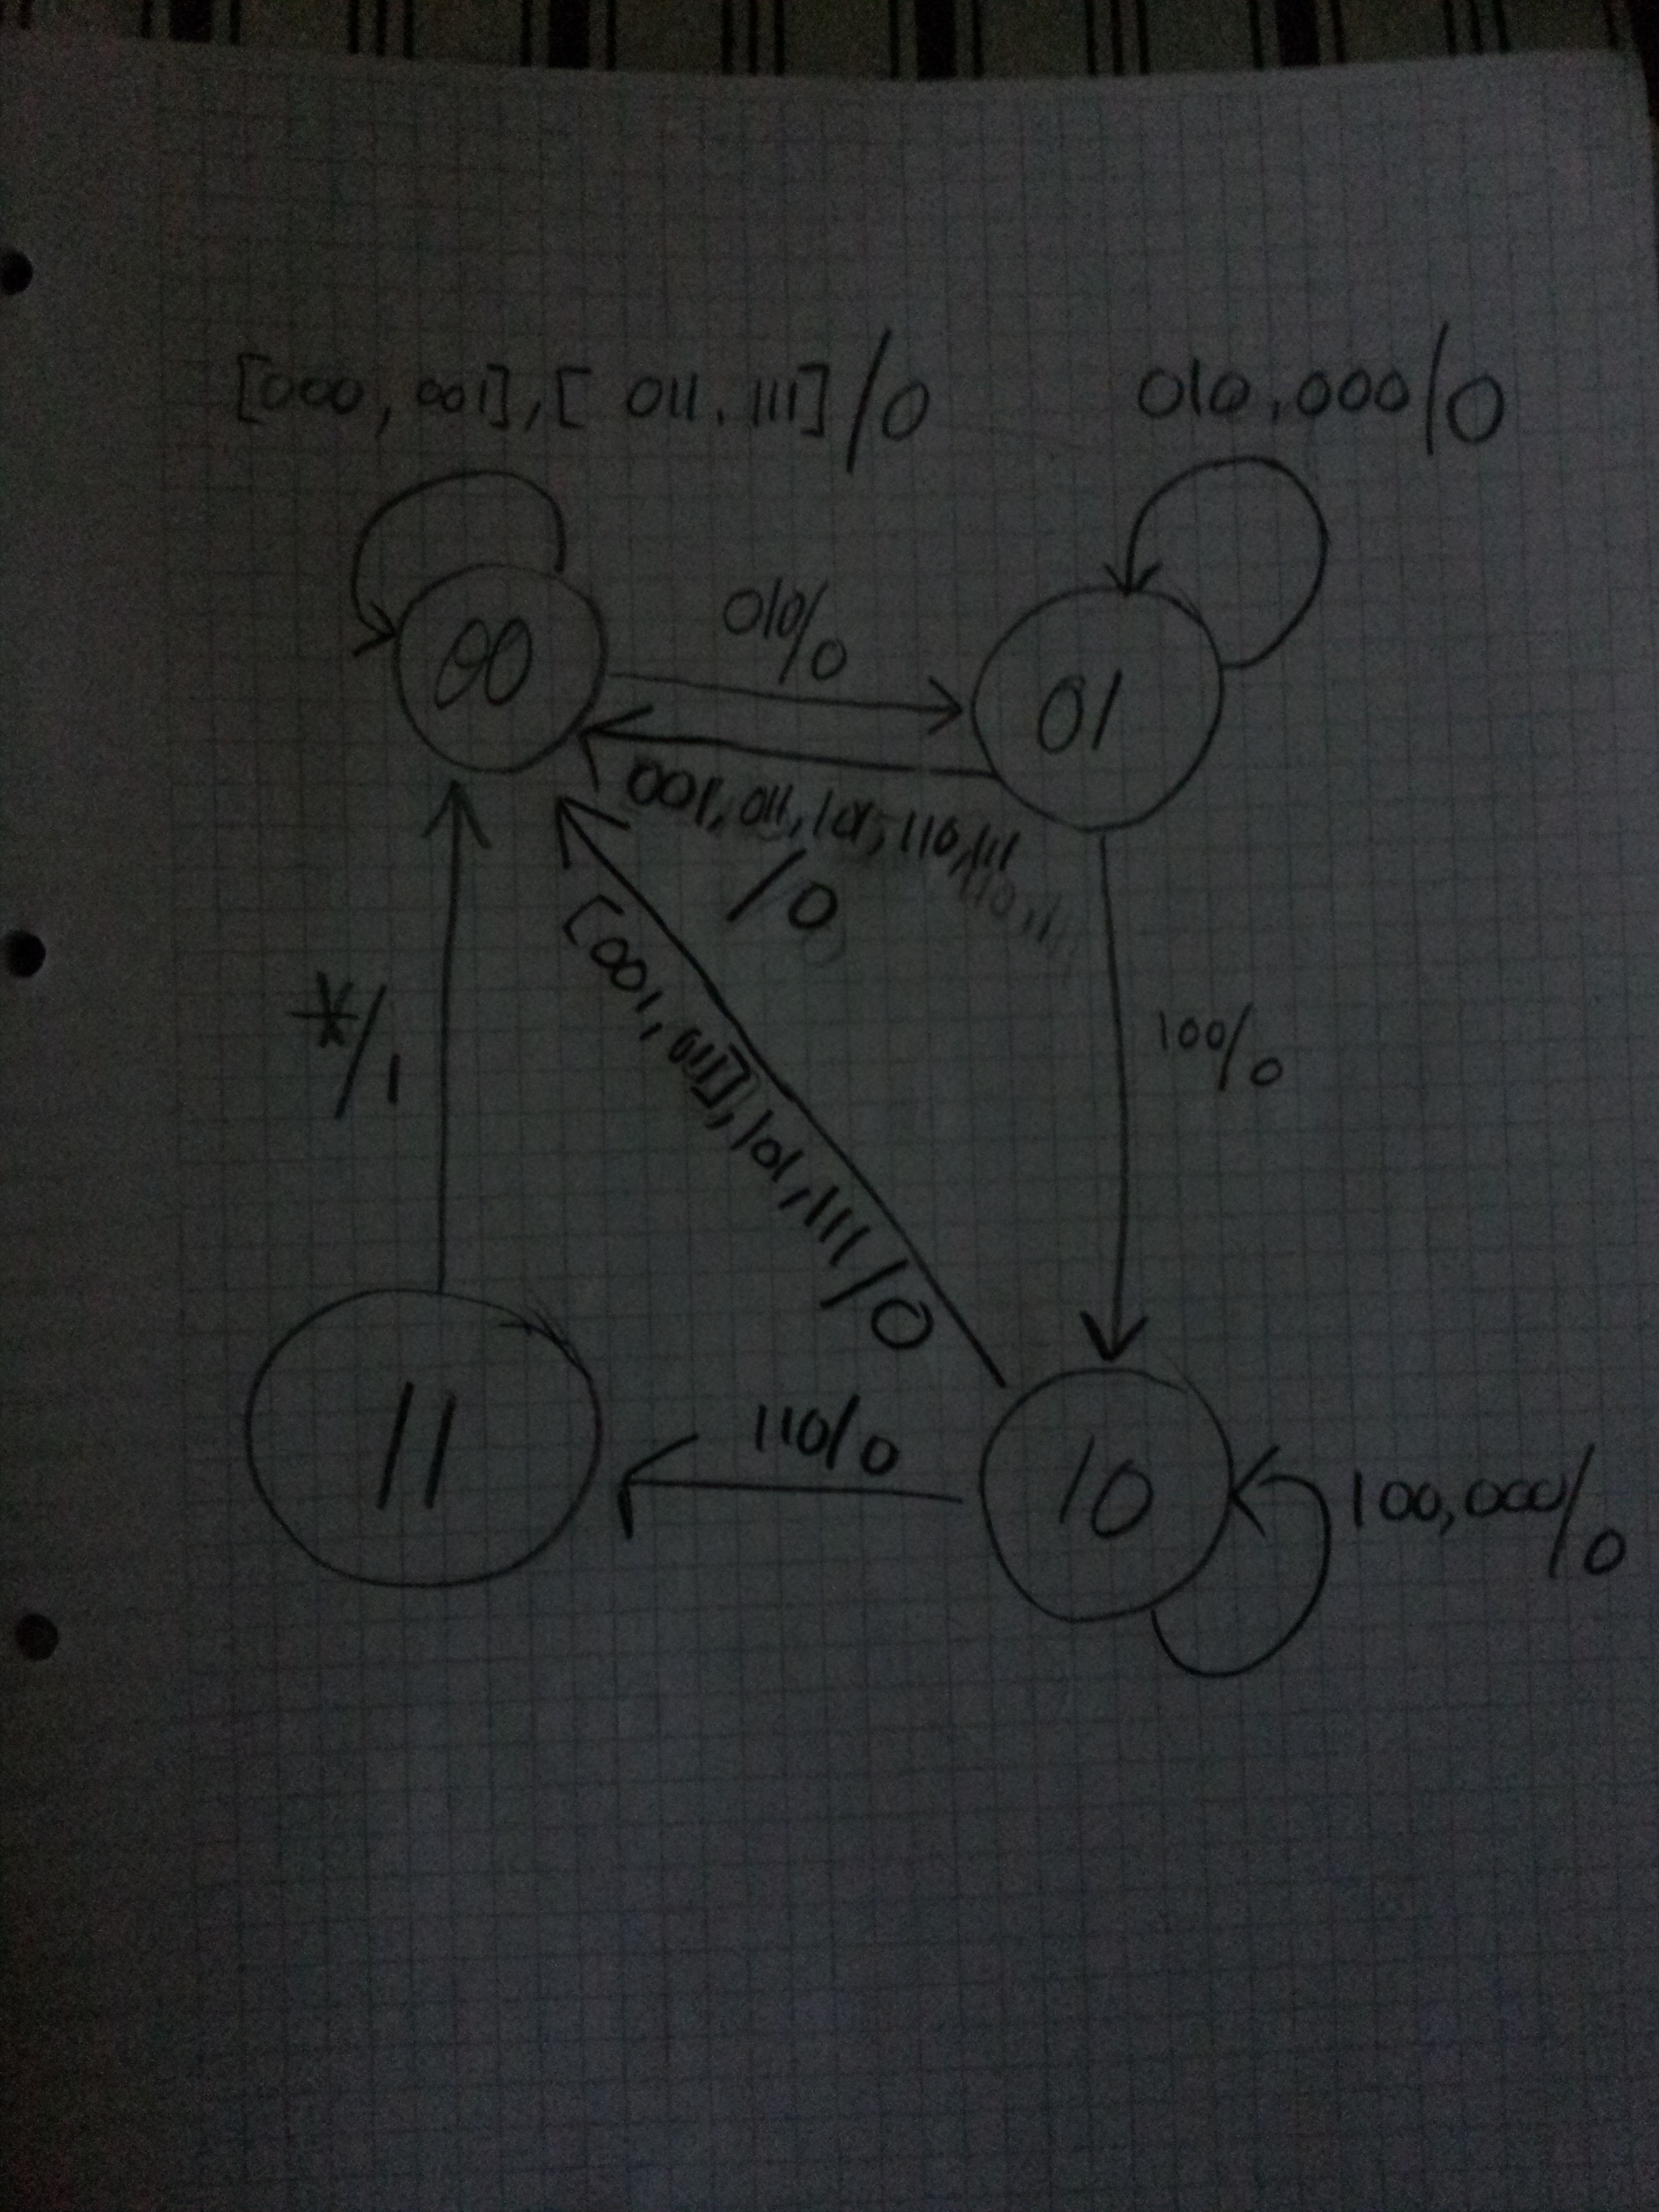 [000, 001], [ 011, 111] /0
010, 000 /0
00
010/0
01
001, 011, 101, 110, 111
/0
*/1
[001, 011], 101, 111 /0
100/0
11
110/0
10
100, 000/0